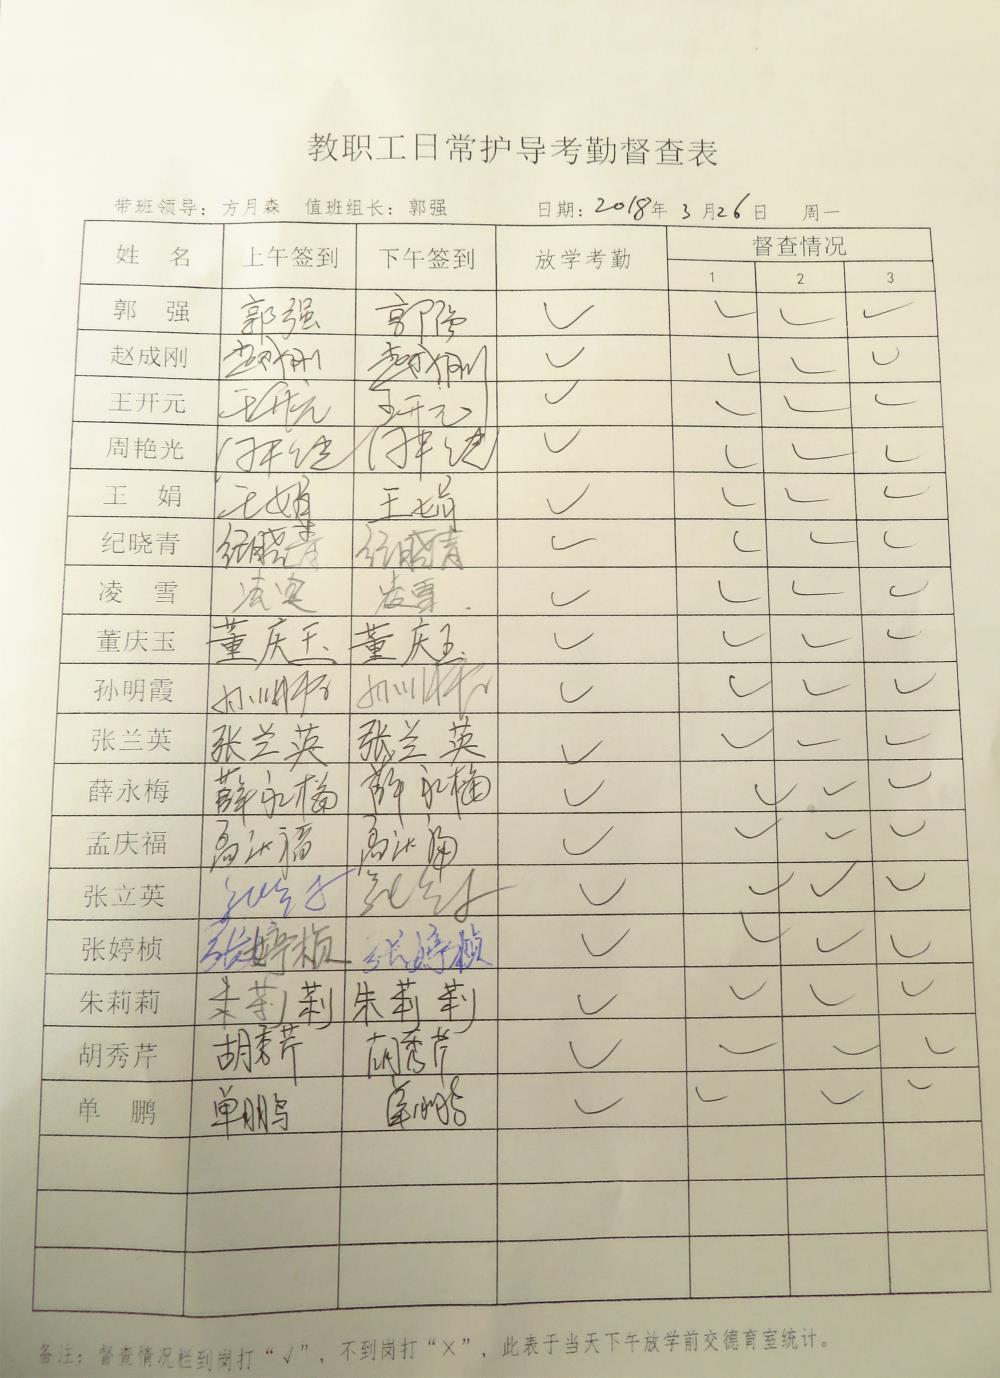 教职工日常护导考勤督查表
带班领导：方月森 值班组长：郭强 日期：2018年 3月26日 周一
姓 名 上午签到 下午签到 放学考勤 督查情况
1 2 3
郭 强 郭强 郭强 ✓ ✓ ✓ ✓
赵成刚 赵成刚 赵成刚 ✓ ✓ ✓ ✓
王开元 王开元 王开元 ✓ ✓ ✓ ✓
周艳光 ✓ ✓ ✓ ✓
王 娟 王娟 王娟 ✓ ✓ ✓ ✓
纪晓青 纪晓青 纪晓青 ✓ ✓ ✓ ✓
凌 雪 凌雪 凌雪 ✓ ✓ ✓ ✓
董庆玉 董庆玉 董庆玉 ✓ ✓ ✓ ✓
孙明霞 ✓ ✓ ✓ ✓
张兰英 张兰英 张兰英 ✓ ✓ ✓ ✓
薛永梅 薛永梅 薛永梅 ✓ ✓ ✓ ✓
孟庆福 孟庆福 孟庆福 ✓ ✓ ✓ ✓
张立英 ✓ ✓ ✓ ✓
张婷桢 张婷桢 张婷桢 ✓ ✓ ✓ ✓
朱莉莉 朱莉莉 朱莉莉 ✓ ✓ ✓ ✓
胡秀芹 胡秀芹 胡秀芹 ✓ ✓ ✓ ✓
单 鹏 单鹏 单鹏 ✓ ✓ ✓ ✓
备注：督查情况栏到岗打“√”，不到岗打“×”，此表于当天下午放学前交德育室统计。